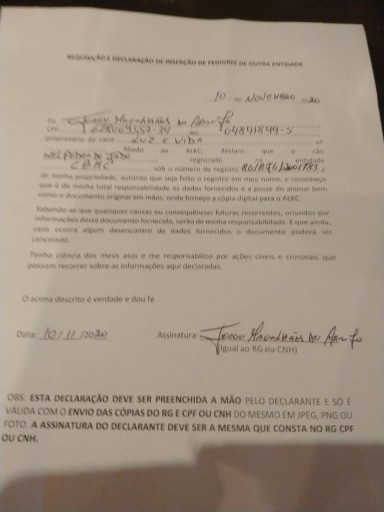 REQUISIÇÃO E DECLARAÇÃO DE INSERÇÃO DE PEDIGREE DE OUTRA ENTIDADE
10 de NOVEMBRO
Eu
CPF RG 04841849-5
proprietário do canil LUZ E VIDA o
filiado ao ALRC, declaro que o cão
PEDRA DE JADE registrado na entidade
CBRC sob o número de registro
de minha propriedade, autorizo que seja feito o registro em meu nome, e reconheço
que é de minha total responsabilidade os dados fornecidos e a posse do animal bem
como o documento original em mãos, onde forneço a cópia digital para o ALRC.
Sabendo-se que quaisquer causas ou consequências futuras recorrentes, oriundos por
informações deste documento fornecido, serão de minha responsabilidade. E que ainda,
caso ocorra algum desencontro de dados fornecidos o documento poderá ser
cancelado.
Tenho ciência dos meus atos e me responsabilizo por ações cíveis e criminais que
possam recorrer sobre as informações aqui declaradas.
O acima descrito é verdade e dou fé
Data: 10/11/2020 Assinatura:
(Igual ao RG ou CNH)
OBS: ESTA DECLARAÇÃO DEVE SER PREENCHIDA A MÃO PELO DECLARANTE E SÓ É
VÁLIDA COM O ENVIO DAS CÓPIAS DO RG E CPF OU CNH DO MESMO EM JPEG, PNG OU
FOTO. A ASSINATURA DO DECLARANTE DEVE SER A MESMA QUE CONSTA NO RG CPF
OU CNH.